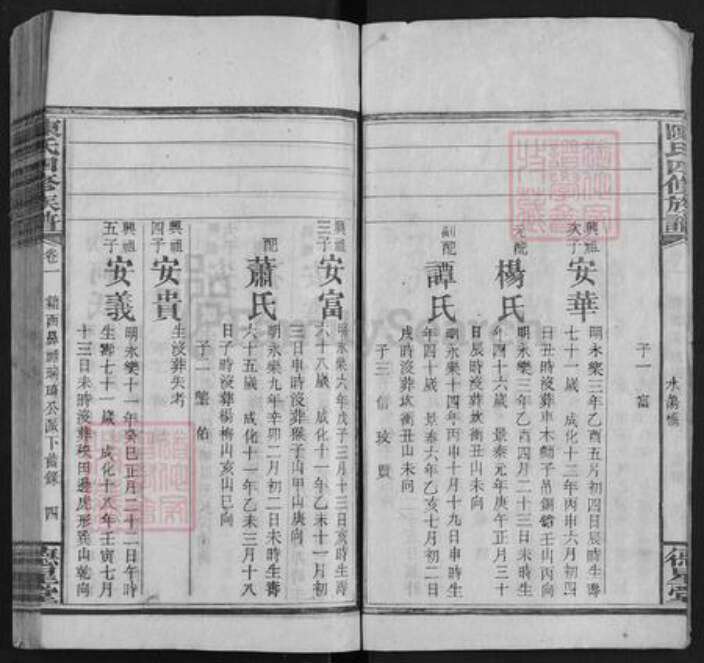 陳氏四修族譜
子一富
興祖次子
安華
明永樂三年乙酉五月初四日辰時生壽
七十一歲 成化十二年丙申六月初四
日丑時沒葬車木壬山丙向
元配
楊氏
明永樂三年乙酉四月二十三日未時生
年四十六歲 景泰元年庚午正月三十
日辰時沒葬坎衝丑山未向
副配
譚氏
明永樂十四年丙申十月十九日申時生
年四十歲 景泰六年乙亥七月初二日
戌時沒葬坎衝丑山未向
子三 信 玫 貫
興祖三子
安富
明永樂六年戊子三月十三日亥時生壽
六十八歲 成化十一年乙未十一月初
三日申時沒葬猴子山甲山庚向
配
蕭氏
明永樂九年辛卯二月初二日未時生壽
六十五歲 成化十一年乙未三月十八
日子時沒葬楊梅山亥山巳向
子一
興祖四子
安貴
生沒葬失考
興祖五子
安義
明永樂十一年癸巳正月二十二日午時
生壽七十歲 成化十八年壬寅七月
十三日未時沒葬秧田邊虎形巽山乾向
陳氏四修族譜
卷一
公派下舊錄
四
德星堂
德星堂